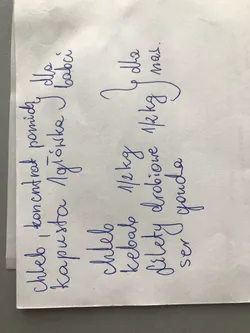 chleb, koncentrat pomid. } dla
kapusta 1 główka } babci
chleb
kebab 1/2 kg } dla
filety drobiowe 1/2 kg } nas.
ser gouda